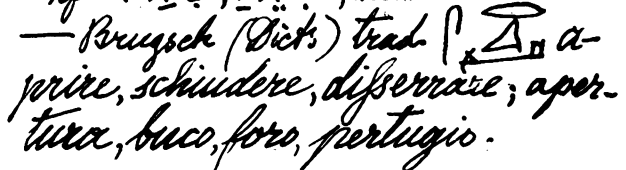 — Brugsch (Dict.) trad. a-
prire, schiudere, disserrare; aper-
tura, buco, foro, pertugio.